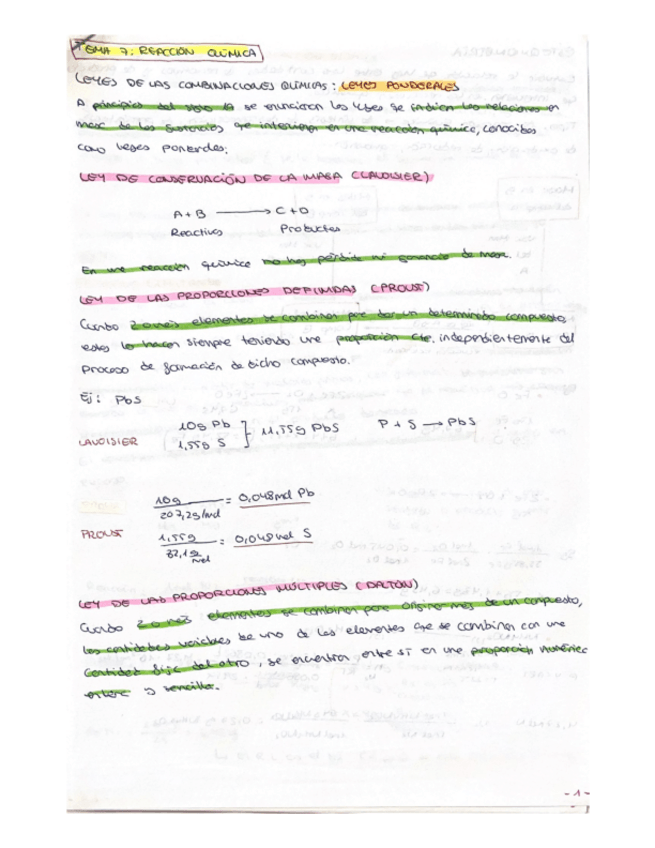 TEMA 7: REACCIÓN QUÍMICA
LEYES DE LAS COMBINACIONES QUÍMICAS: LEYES PONDERALES
A principios del siglo 19 se enunciaron las leyes que indican las relaciones en
masa de las sustancias que intervienen en una reacción química, conocidas
como leyes ponerdes;
LEY DE CONSERVACIÓN DE LA MASA (LAVOISIER)
A + B ⟶ C + D
Reactivos Productos
En una reacción química no hay pérdida ni ganancia de masa.
LEY DE LAS PROPORCIONES DEFINIDAS (PROUST)
Cuando 2 o más elementos se combinan para dar un determinado compuesto,
estos lo hacen siempre teniendo una proporción cte. independientemente del
proceso de formación de dicho compuesto.
Ej: PbS
LAVOISIER 10g Pb
1,55g S ] 11,55g PbS P + S ⟶ PbS
PROUST 10g / 207,2g/mol = 0,048 mol Pb
1,55g / 32,1 g/mol = 0,048 mol S
LEY DE LAS PROPORCIONES MÚLTIPLES (DALTON)
Cuando 2 o más elementos se combinan para origina más de un compuesto,
las cantidades variables de uno de los elementos que se combinan con una
cantidad fija del otro, se encuentran entre sí en una proporción numéric
entera y sencilla.
- 1 -